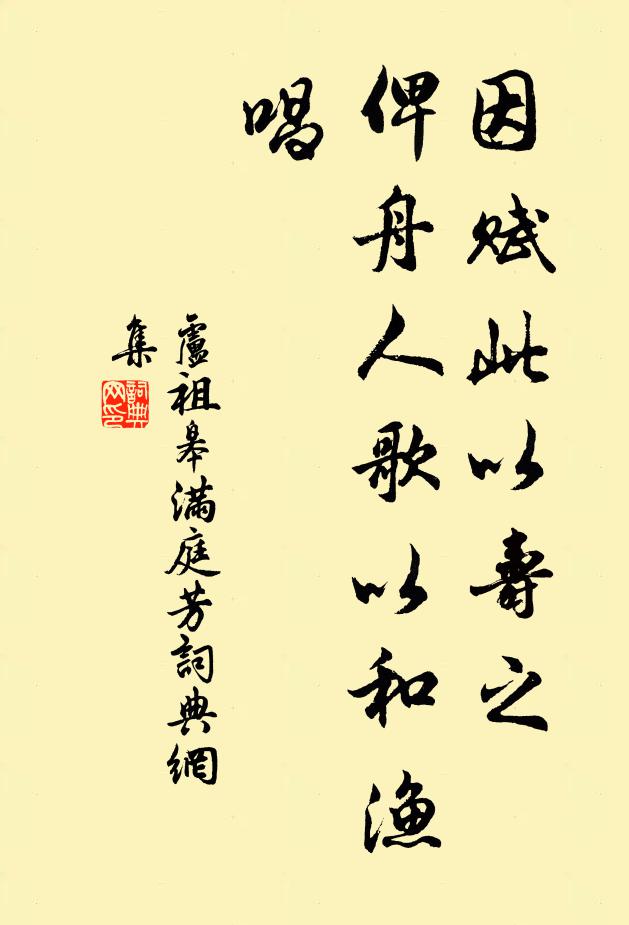 因赋此以壽之
俾舟人歌以和漁
唱
盧祖皋滿庭芳詞典網
集
詞典
网印